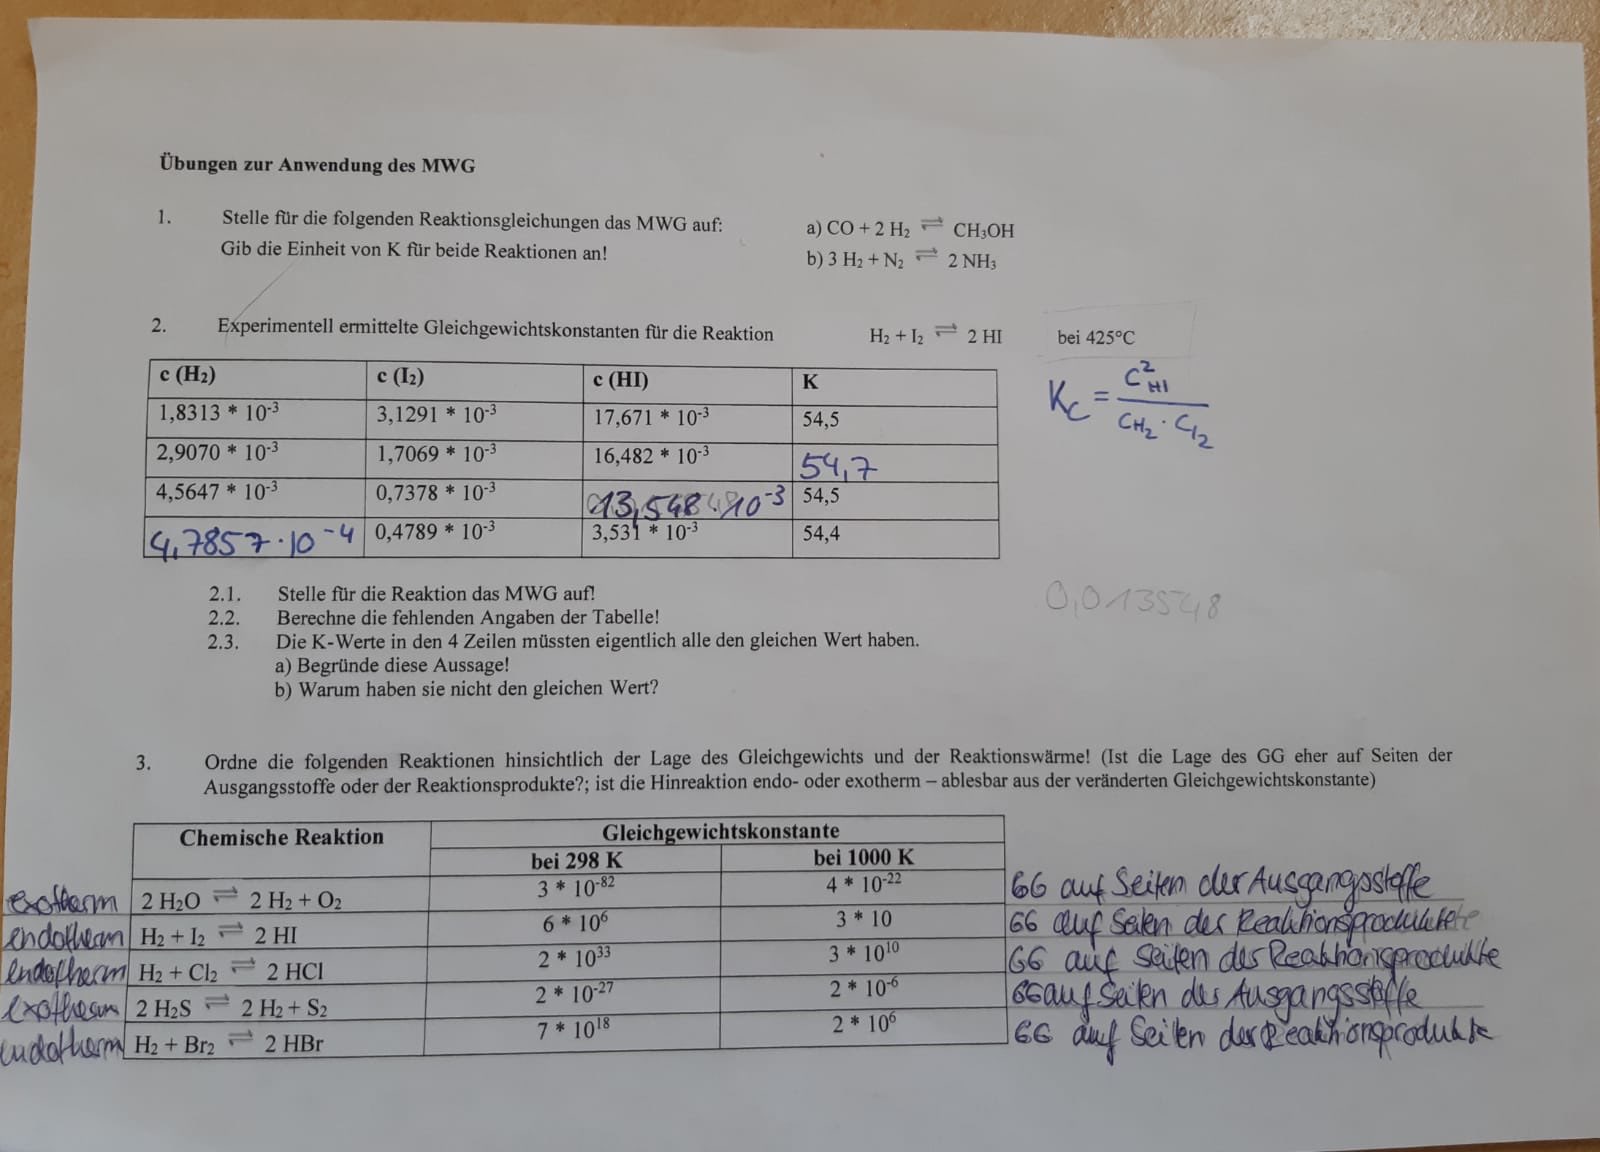 Übungen zur Anwendung des MWG
1. Stelle für die folgenden Reaktionsgleichungen das MWG auf: a) CO + 2 H₂ ⇌ CH₃OH
Gib die Einheit von K für beide Reaktionen an! b) 3 H₂ + N₂ ⇌ 2 NH₃
2. Experimentell ermittelte Gleichgewichtskonstanten für die Reaktion H₂ + I₂ ⇌ 2 HI bei 425°C
c (H₂) c (I₂) c (HI) K
1,8313 * 10⁻³ 3,1291 * 10⁻³ 17,671 * 10⁻³ 54,5
2,9070 * 10⁻³ 1,7069 * 10⁻³ 16,482 * 10⁻³ 54,7
4,5647 * 10⁻³ 0,7378 * 10⁻³ 13,548 · 10⁻³ 54,5
4,7857 · 10⁻⁴ 0,4789 * 10⁻³ 3,531 * 10⁻³ 54,4
K_C = C²_HI / C_H₂ · C_I₂
2.1. Stelle für die Reaktion das MWG auf!
2.2. Berechne die fehlenden Angaben der Tabelle!
0,013548
2.3. Die K-Werte in den 4 Zeilen müssten eigentlich alle den gleichen Wert haben.
a) Begründe diese Aussage!
b) Warum haben sie nicht den gleichen Wert?
3. Ordne die folgenden Reaktionen hinsichtlich der Lage des Gleichgewichts und der Reaktionswärme! (Ist die Lage des GG eher auf Seiten der
Ausgangsstoffe oder der Reaktionsprodukte?; ist die Hinreaktion endo- oder exotherm – ablesbar aus der veränderten Gleichgewichtskonstante)
Chemische Reaktion Gleichgewichtskonstante
bei 298 K bei 1000 K
exotherm 2 H₂O ⇌ 2 H₂ + O₂ 3 * 10⁻⁸² 4 * 10⁻²² GG auf Seiten der Ausgangsstoffe
endotherm H₂ + I₂ ⇌ 2 HI 6 * 10⁶ 3 * 10 GG auf Seiten der Reaktionsprodukte
endotherm H₂ + Cl₂ ⇌ 2 HCl 2 * 10³³ 3 * 10¹⁰ GG auf Seiten der Reaktionsprodukte
exotherm 2 H₂S ⇌ 2 H₂ + S₂ 2 * 10⁻²⁷ 2 * 10⁻⁶ GG auf Seiten der Ausgangsstoffe
endotherm H₂ + Br₂ ⇌ 2 HBr 7 * 10¹⁸ 2 * 10⁶ GG auf Seiten der Reaktionsprodukte